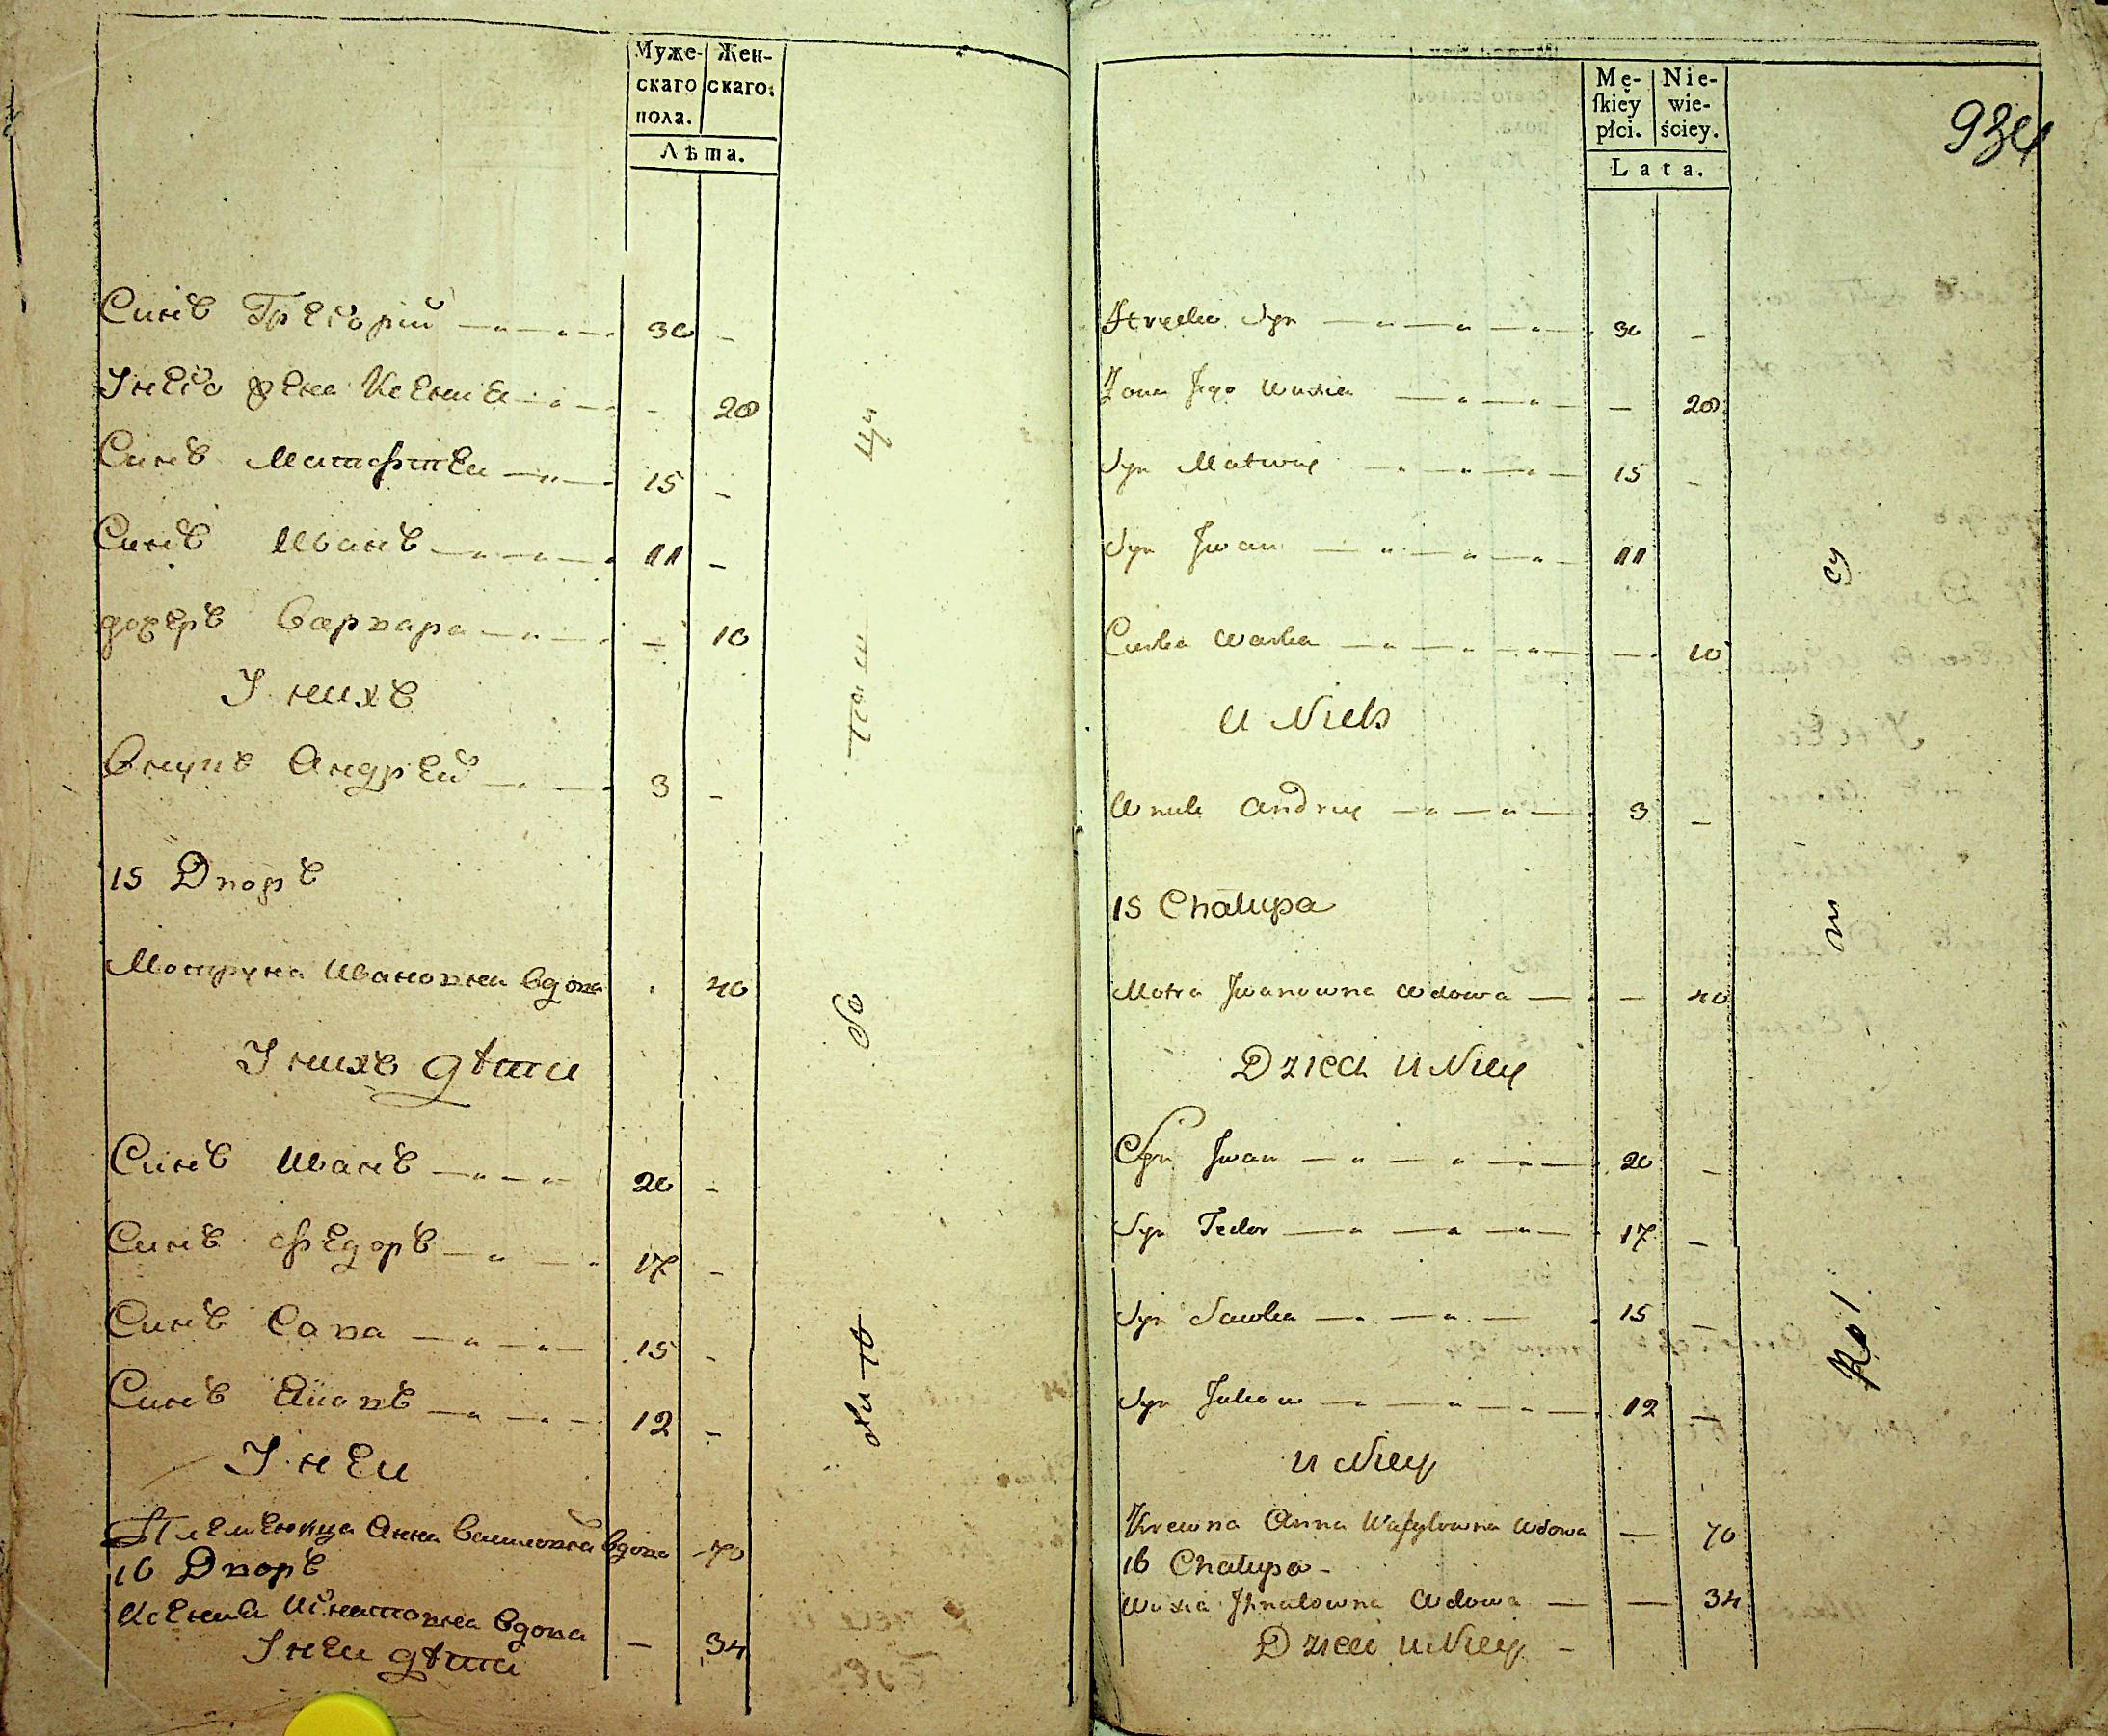 Муже- Жен-
скаго скаго.
пола.
Лѣта.
Синъ Григорій 30 -
У него жена Ксения - 20
Синъ Матфтеи 15 -
Синъ Иванъ 11 -
дочеръ Варвара - 10
У нихъ
Внукъ Андрей 3 -
15 Дворъ
Мотруна Ивановна вдова 40
У нихъ дѣти
Синъ Иванъ 20 -
Синъ Федоръ 17 -
Синъ Сава 15 -
Синъ 12 -
У неи
Племеница Анна вдова - 70
16 Дворъ
Ксения Игнатовна вдова - 34
У неи дѣти
Mę- Nie-
ſkiey wie-
płci. ściey.
Lata.
934
Syn 30 -
Żona Jego - 20
Syn Matwiy 15 -
Syn Jwan 11
Curka Waska - 10
U Nich
Wnuk Andriy 3 -
15 Chałupa
Motra Jwanowna Wdowa - 40
Dzieci U Niey
Syn Jwan 20 -
Syn Fedor 17 -
Syn Sawka 15 -
Syn Julian 12 -
U Niey
Krewna Anna Waſylowna Wdowa - 70
16 Chałupa -
Jhnatowna Wdowa - 34
Dzieci U Niey -